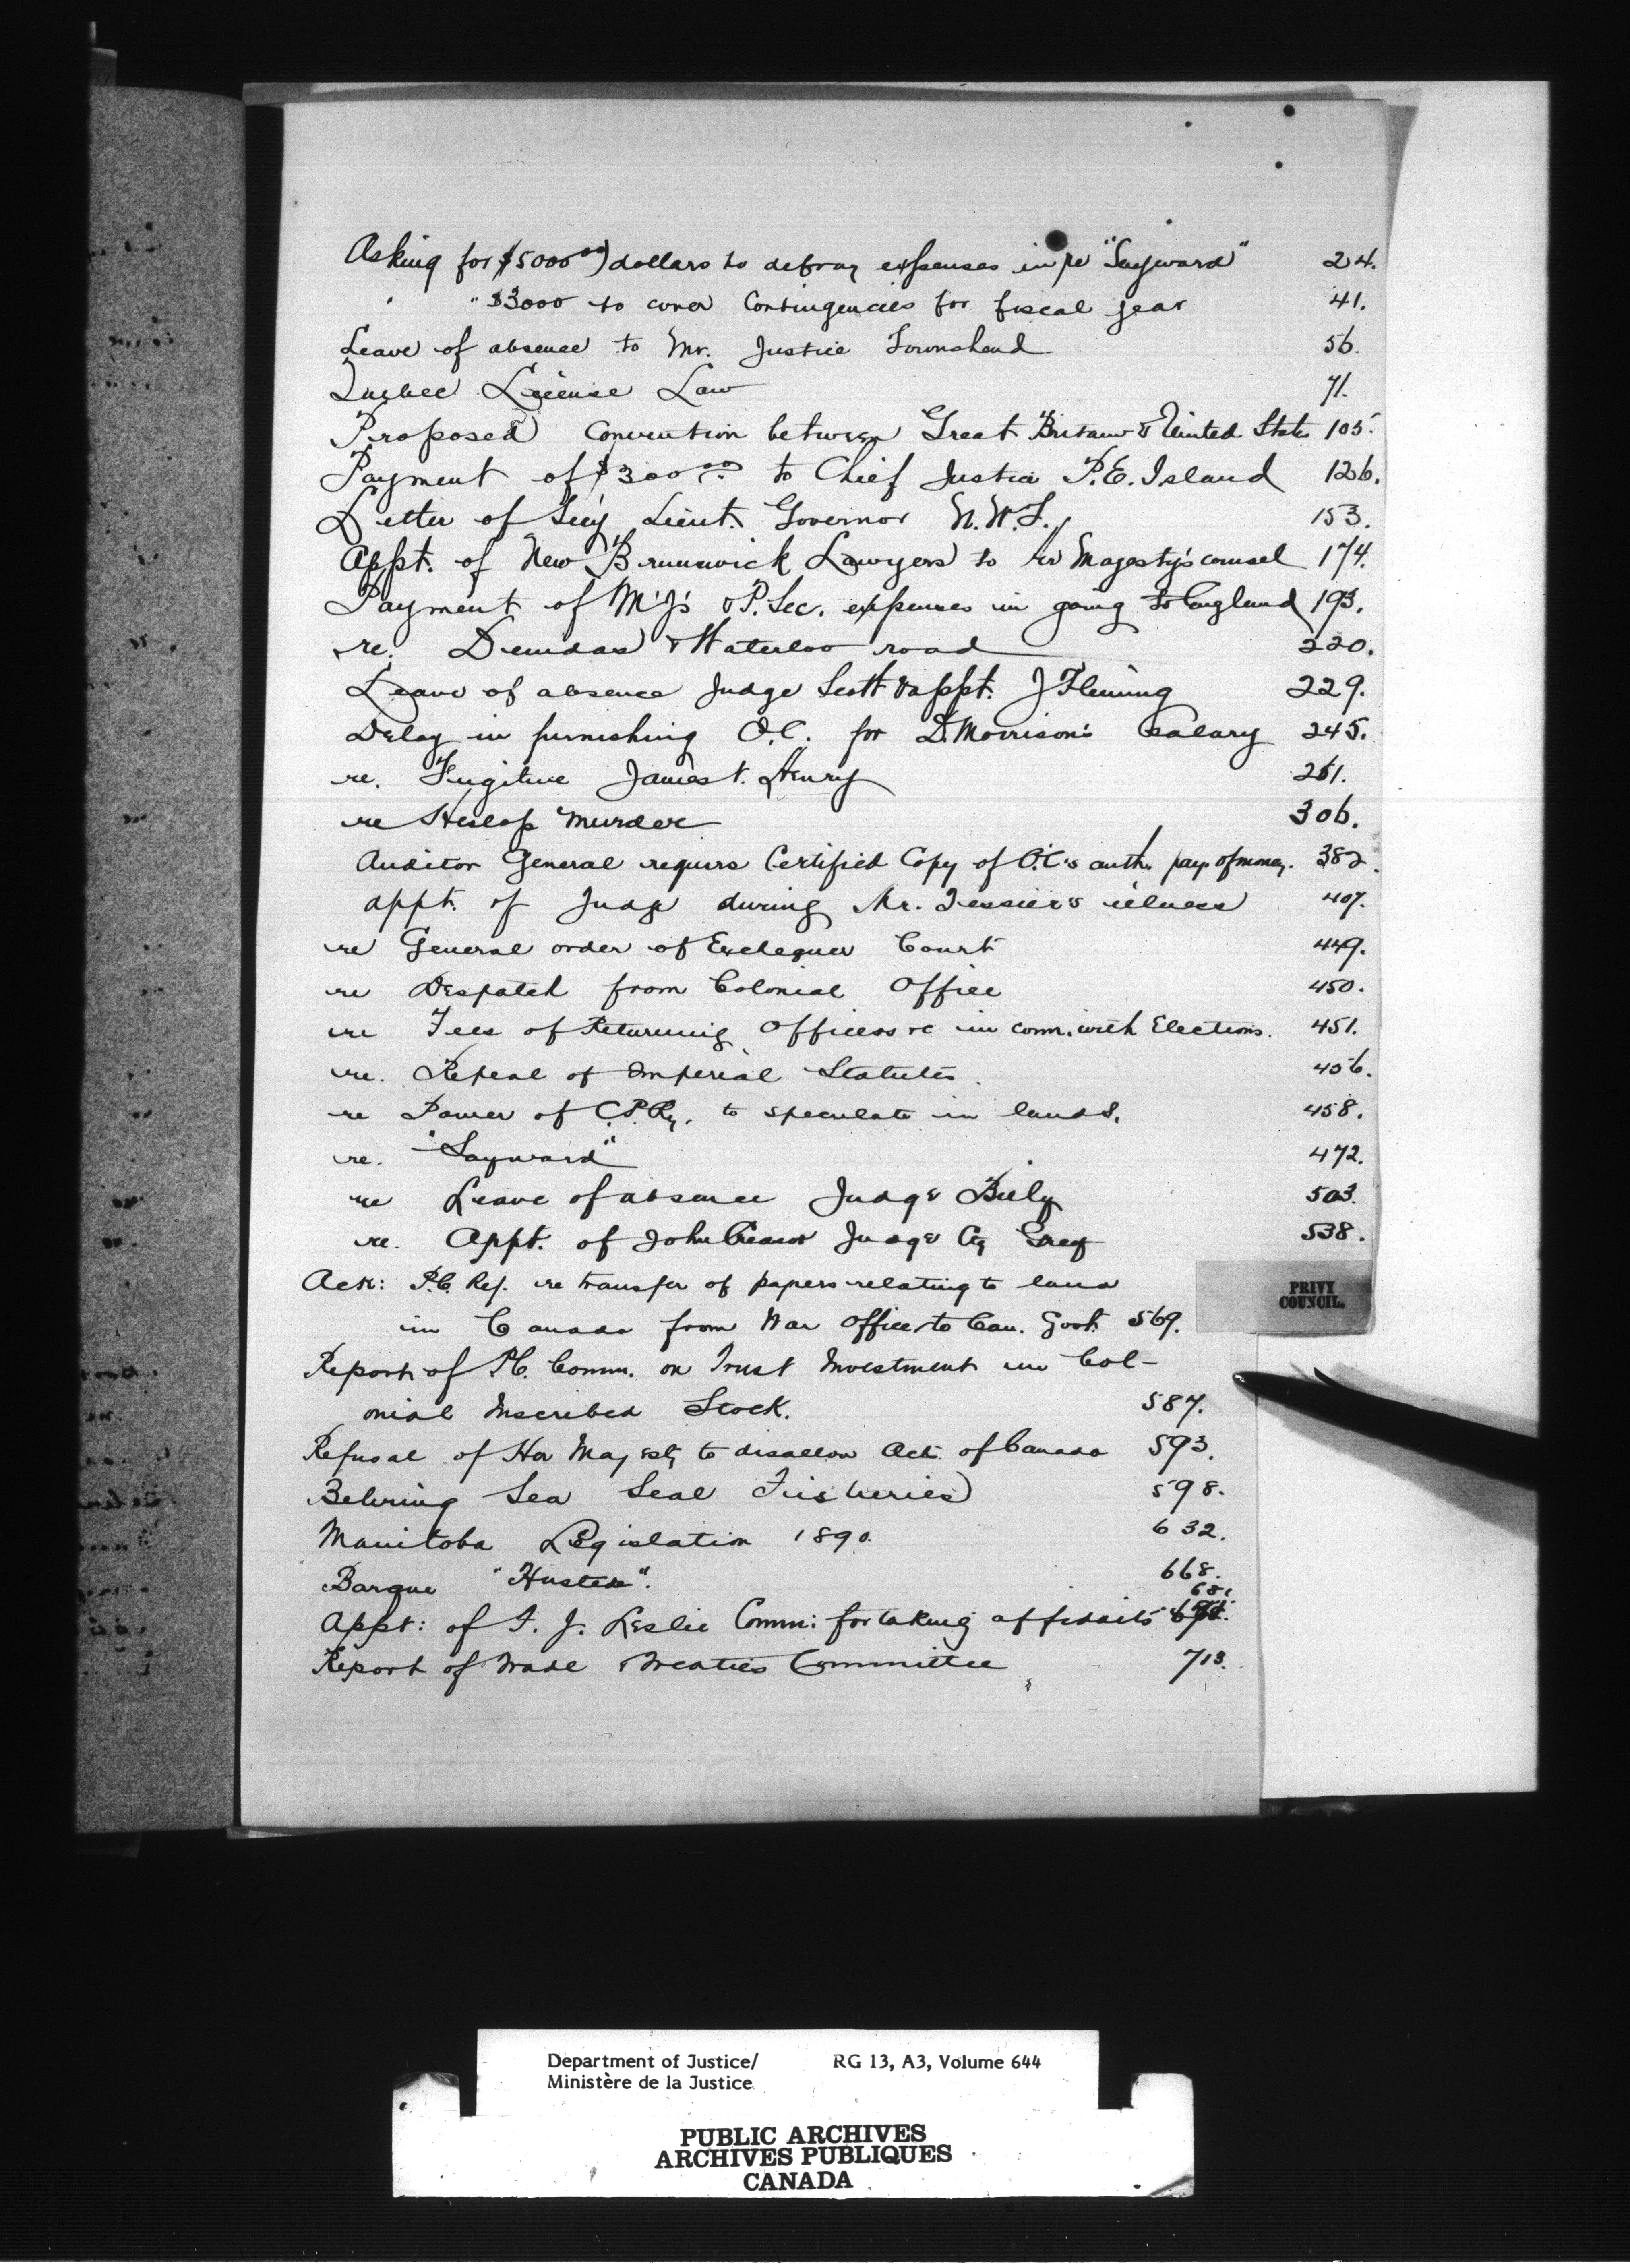 Asking for $5000.00 dollars to defray expenses in re "Sayward" 24.
" $3000 to cover Contingencies for fiscal year 41.
Leave of absence to Mr. Justice Townshend 56.
Quebec License Law 71.
Proposed Convention between Great Britain & United States 105.
Payment of $300.00 to Chief Justice P.E. Island 126.
Letter of Sec'y Lieut. Governor N.W.T. 153.
Appt. of New Brunswick Lawyers to her Magesty's counsel 174.
Payment of M'J's & P. Sec. expenses in going to England 193.
re. Dundas & Waterloo road 220.
Leave of absence Judge Scott & appt. J Fleming 229.
Delay in furnishing O.C. for D. Morrison's salary 245.
re. Fugitive James T. Henry 261.
re Heslop Murder 306.
Auditor General requrs Certified Copy of O.C's auth. pay. of money. 382.
appt. of Judge during Mr. Tessier's illness 407.
re General order of Exchequer Court 449.
re Despatch from Colonial Office 450.
re Fees of Returning Officers &c in conn. with Elections. 451.
re. Repeal of Imperial Statutes. 456.
re Power of C.P.Ry. to speculate in lands. 458.
re. "Sayward" 472.
re Leave of absence Judge Biely 503.
re. Appt. of John Creasor Judge Cy Grey 538.
Ack: P.C. Ref. re transfer of papers relating to land
in Canada from War Office to Can. Govt. 569.
PRIVY
COUNCIL.
Report of P.C. Comm. on Trust Investment in Col-
onial Inscribed Stock. 587.
Refusal of Her Majesty to disallow Act of Canada 593.
Behring Sea Seal Fisheries 598.
Manitoba Legislation 1890. 632.
Barque 668.
Appt: of J. Leslie Comm: for taking affidavits 681
Report of Trade & Treaties Committee 713.
Department of Justice/ RG 13, A3, Volume 644
Ministère de la Justice
PUBLIC ARCHIVES
ARCHIVES PUBLIQUES
CANADA